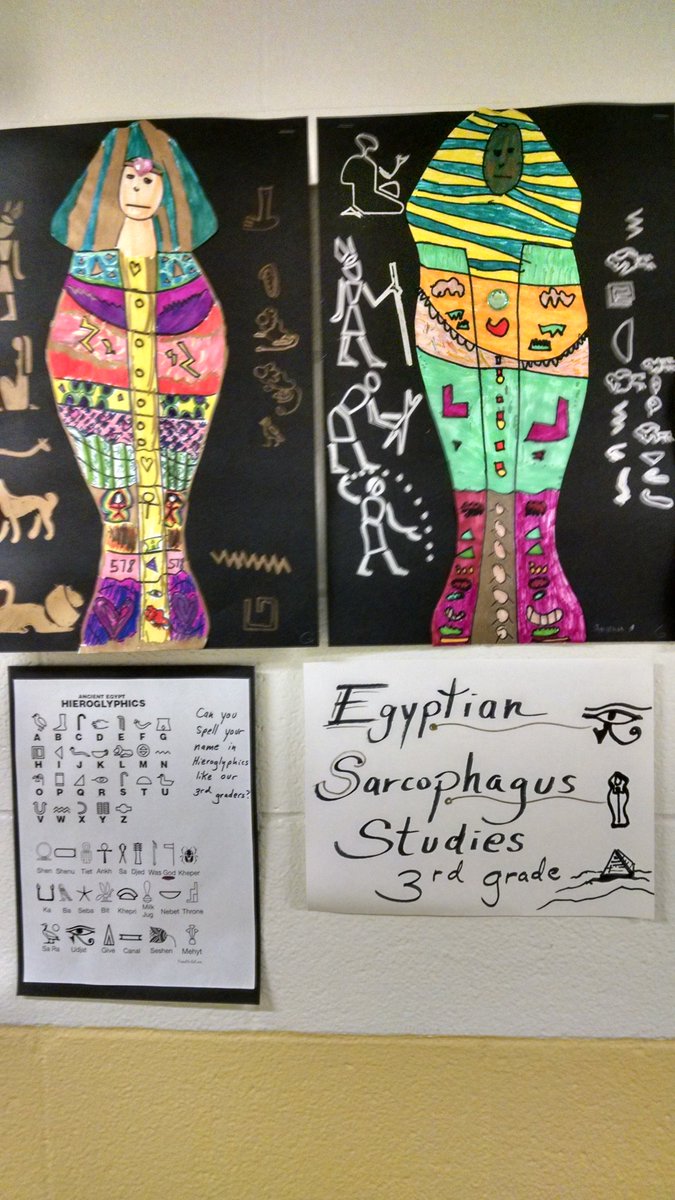 578
57
ANCIENT EGYPT
HIEROGLYPHICS
A B C D E F G
H I J K L M N
O P Q R S T U
V W X Y Z
Shen Shenu Tiet Ankh Sa Djed Was God Kheper
Ka Ba Seba Bit Khepri Milk Jug Nebet Throne
Sa Ra Udjat Give Canal Seshen Mehyt
Can you
Spell your
name in
Hieroglyphics
like our
3rd graders?
Egyptian
Sarcophagus
Studies
3rd grade